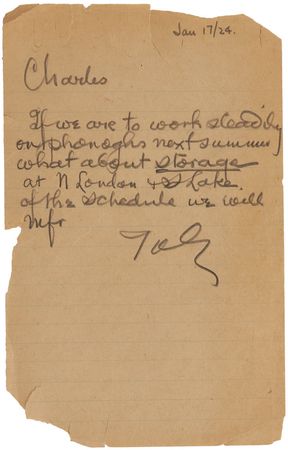 Jan 17/24.
Charles
If we are to work steadily
on phonoghs next summer
what about storage
at N London & S Lake.
of the schedule we will
mfr